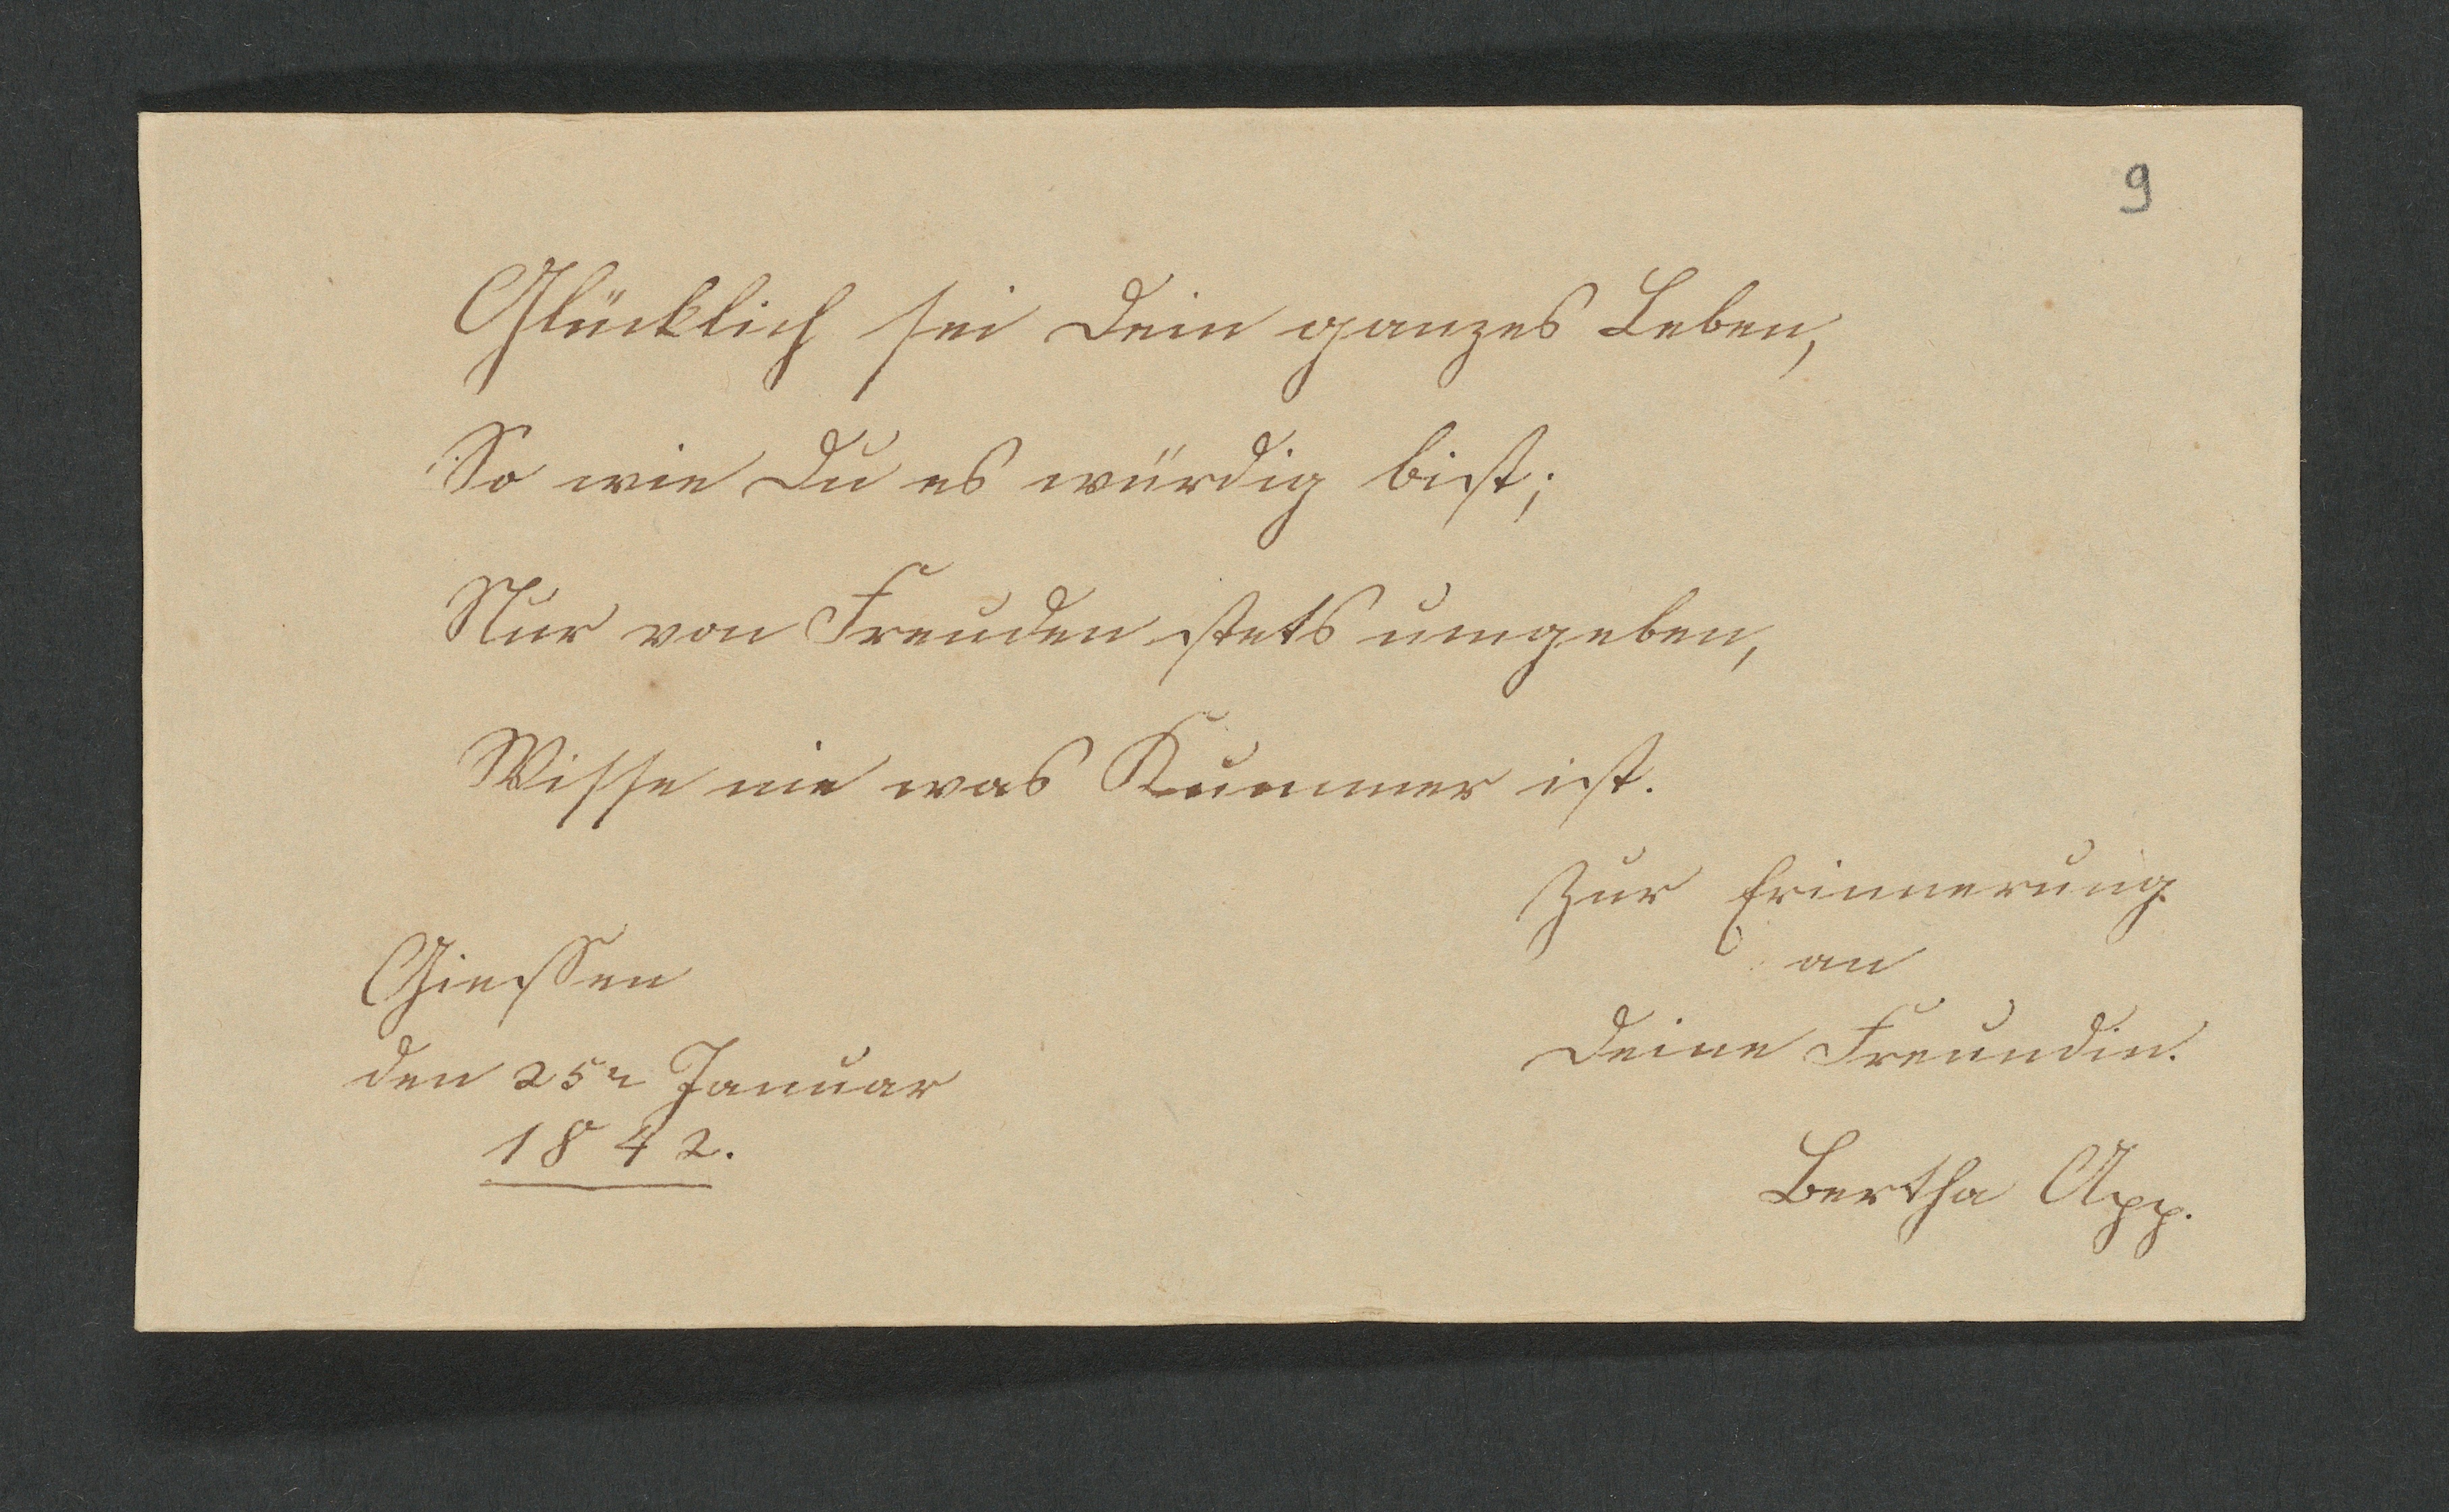 9
Glücklich sei Dein ganzes Leben,
So wie Du es würdig bist;
Nur von Freuden stets umgeben,
Wisse nie was Kummer ist.
Zur Erinnerung
an
Deine Freundin.
Bertha App.
Giessen
den 25n Januar
1842.